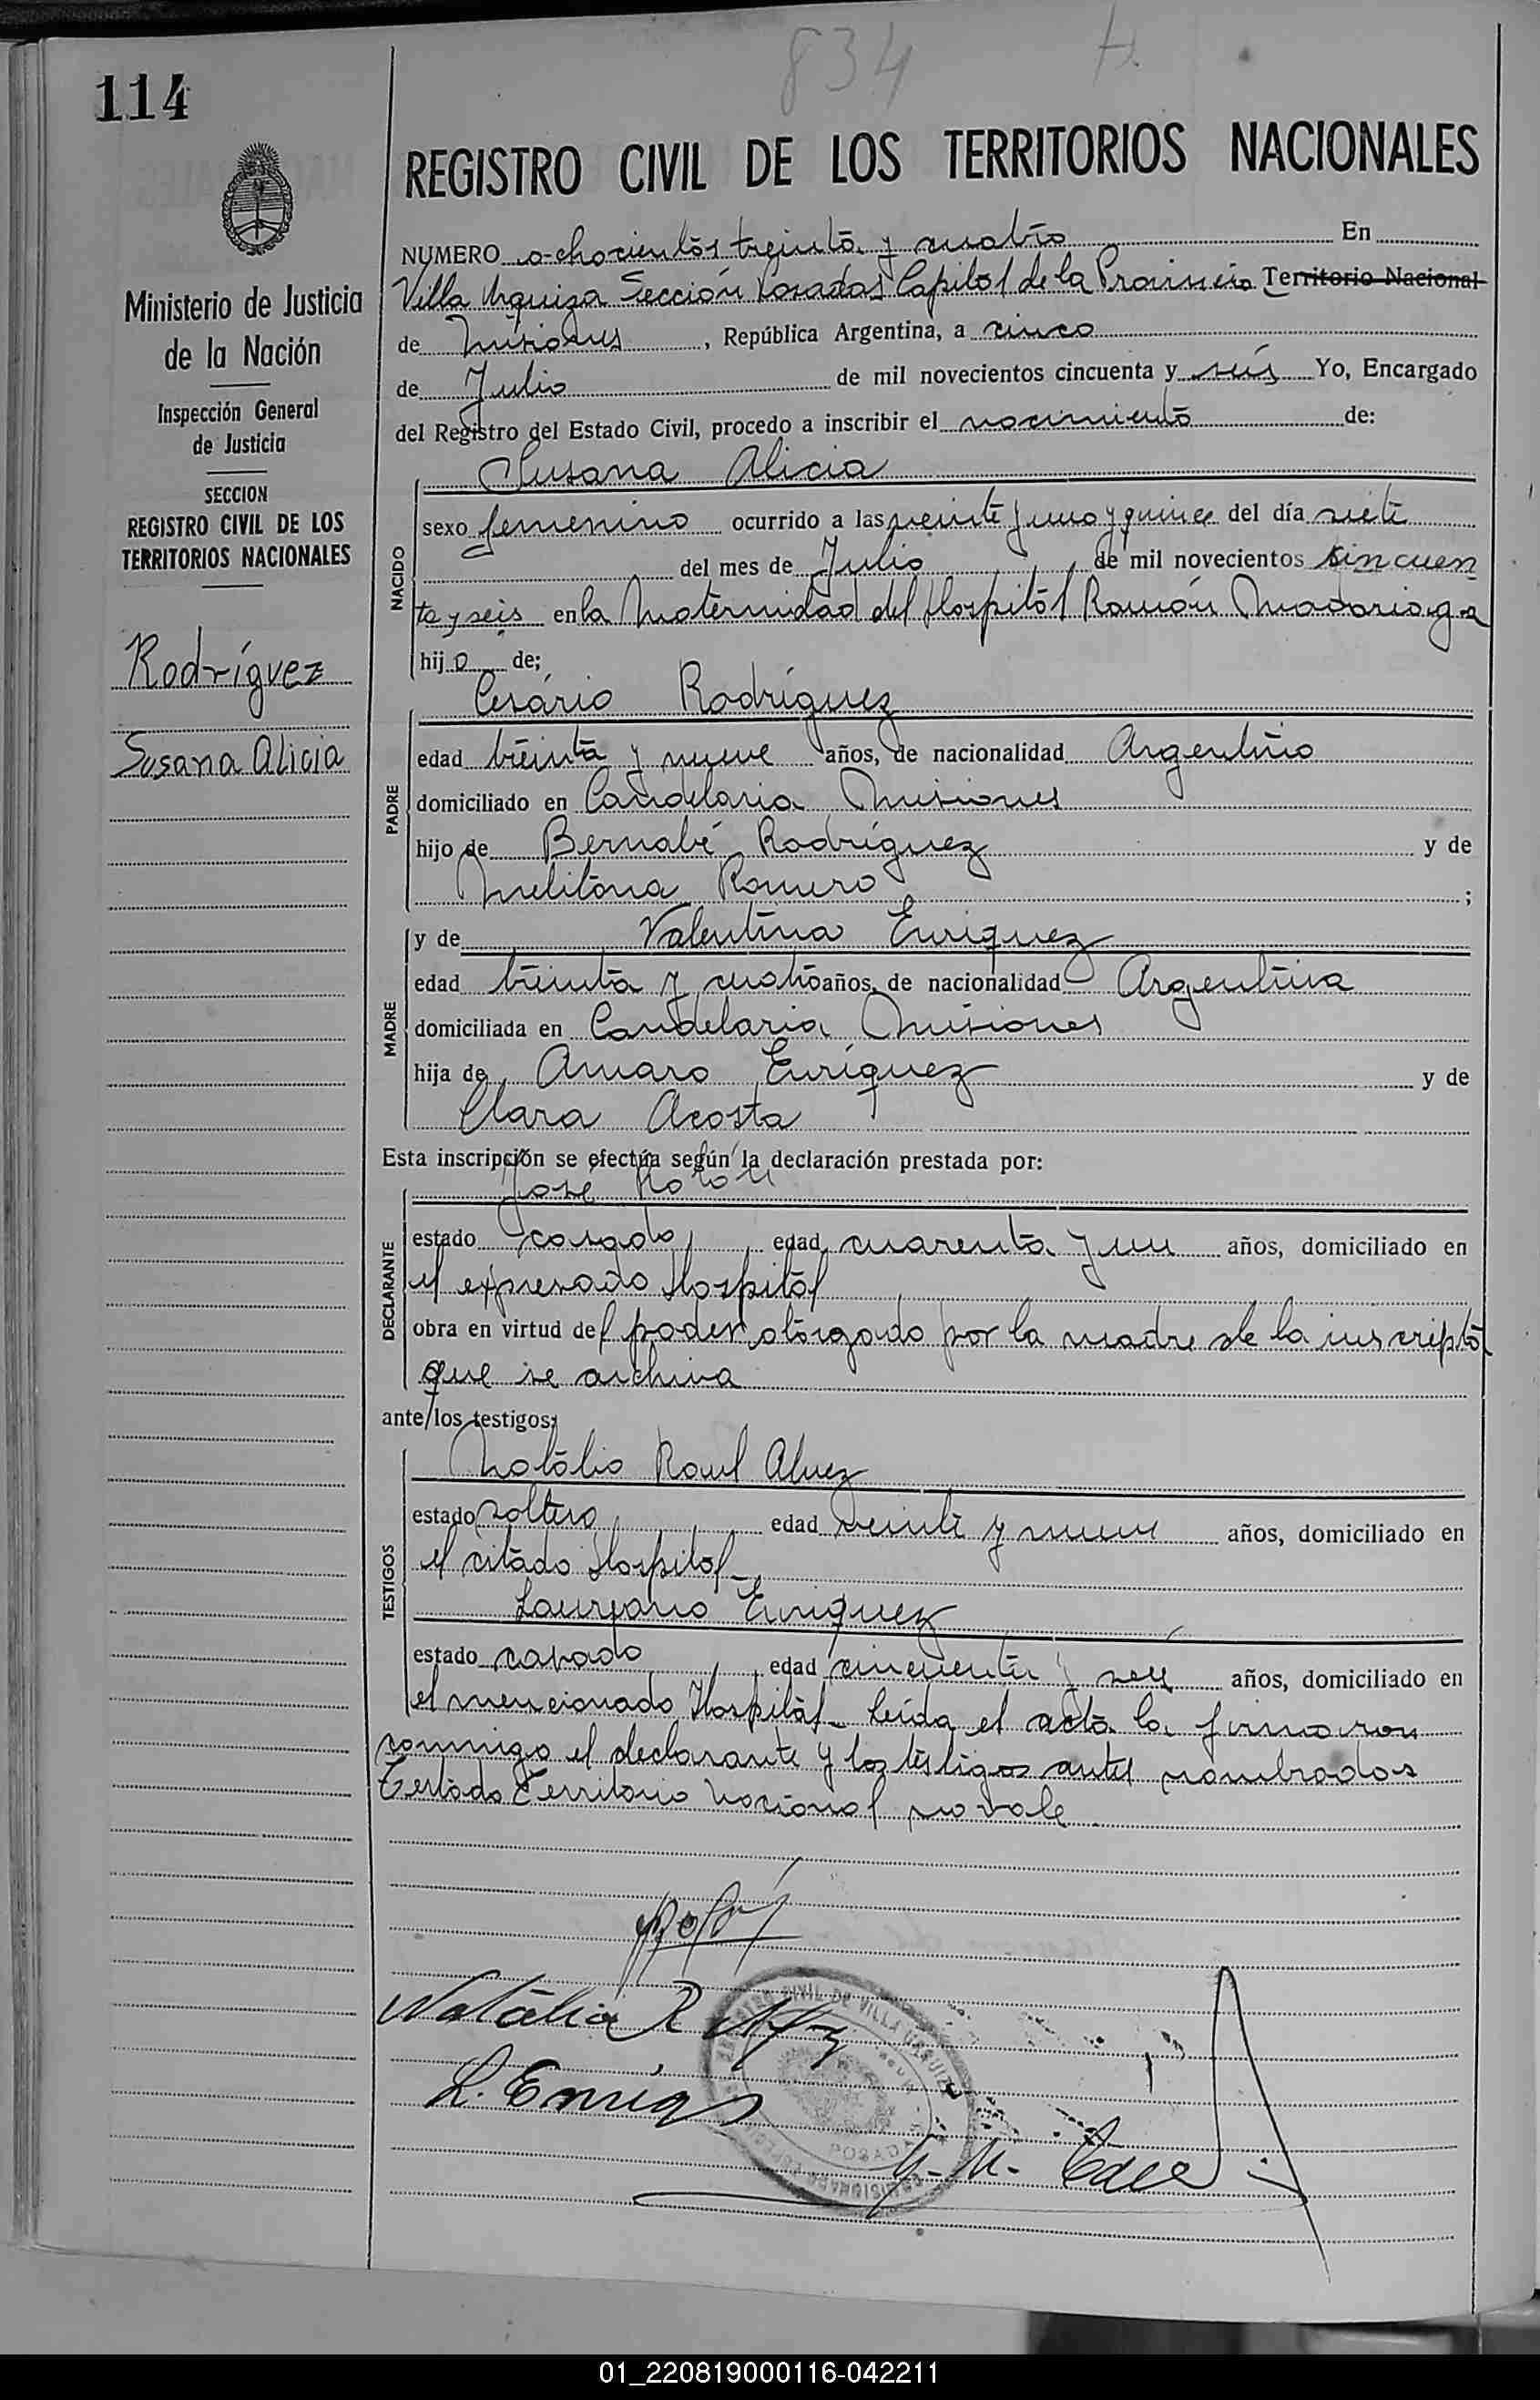 834
114
REGISTRO CIVIL DE LOS TERRITORIOS NACIONALES
Ministerio de Justicia
de la Nación
Inspección General
de Justicia
SECCION
REGISTRO CIVIL DE LOS
TERRITORIOS NACIONALES
Rodríguez
Susana Alicia
NUMERO ochocientos treinta y cuatro En
Villa Urquiza Sección Posadas Capital de la Provincia Territorio Nacional
de Misiones, República Argentina, a cinco
de Julio de mil novecientos cincuenta y seis Yo, Encargado
del Registro del Estado Civil, procedo a inscribir el nacimiento de:
NACIDO
Susana Alicia
sexo femenino ocurrido a las veinte y uno y quince del día siete
del mes de Julio de mil novecientos cincuen
ta y seis en la Maternidad del Hospital Ramón Madariaga
hija de;
PADRE
Cesário Rodríguez
edad treinta y nueve años, de nacionalidad Argentino
domiciliado en Candelaria Misiones
hijo de Bernabé Rodríguez y de
Melitona Romero ;
MADRE
y de Valentina Enriquez
edad treinta y cuatro años, de nacionalidad Argentina
domiciliada en Candelaria Misiones
hija de Amaro Enriquez y de
Clara Acosta
Esta inscripción se efectúa según la declaración prestada por:
DECLARANTE
José
estado casado edad cuarenta y un años, domiciliado en
el expresado Hospital
obra en virtud del poder otorgado por la madre de la inscripta
que se archiva
ante los testigos:
TESTIGOS
Natálio Raul Alvez
estado soltero edad veinte y nueve años, domiciliado en
el citado Hospital
Laureano Enriquez
estado casado edad cincuenta y seis años, domiciliado en
el mencionado Hospital leída el acta la firmaron
conmigo el declarante y los testigos antes nombrados
Testado Territorio Nacional no vale
Natálio R
L. Enriq
REGISTRO CIVIL DE VILLA URQUIZA
POSADAS
01_220819000116-042211